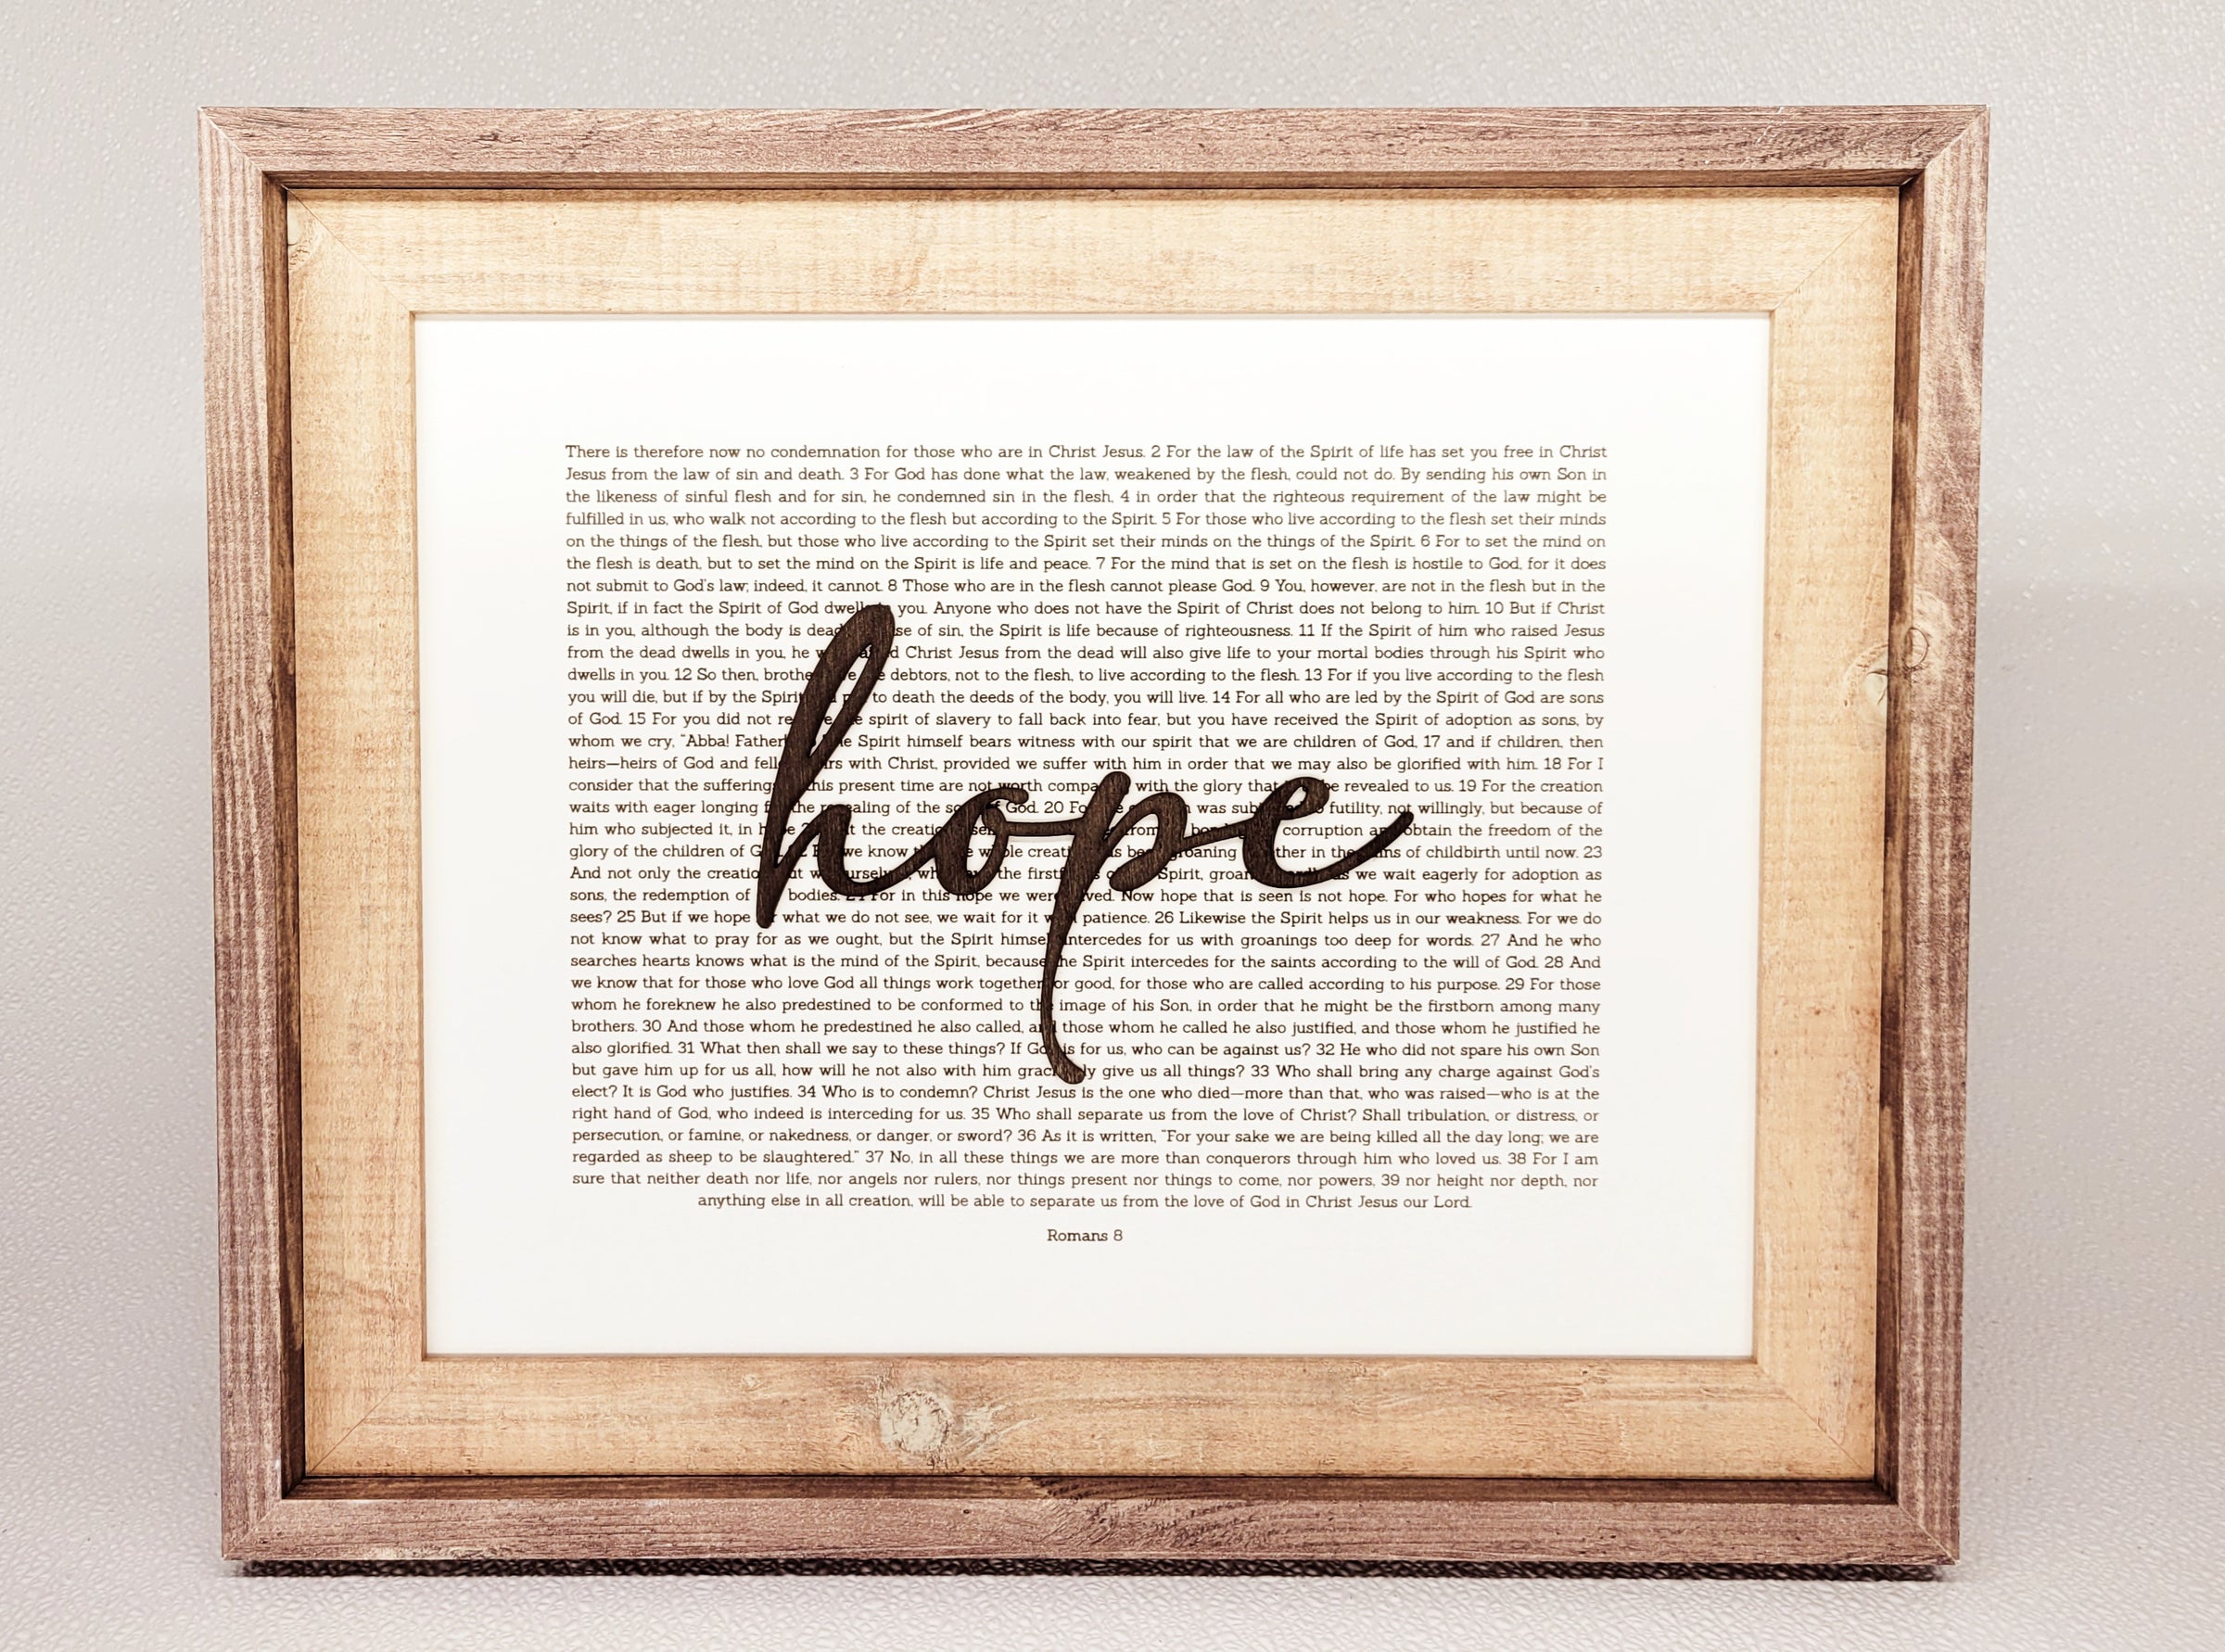 There is therefore now no condemnation for those who are in Christ Jesus. 2 For the law of the Spirit of life has set you free in Christ
Jesus from the law of sin and death. 3 For God has done what the law, weakened by the flesh, could not do. By sending his own Son in
the likeness of sinful flesh and for sin, he condemned sin in the flesh, 4 in order that the righteous requirement of the law might be
fulfilled in us, who walk not according to the flesh but according to the Spirit. 5 For those who live according to the flesh set their minds
on the things of the flesh, but those who live according to the Spirit set their minds on the things of the Spirit. 6 For to set the mind on
the flesh is death, but to set the mind on the Spirit is life and peace. 7 For the mind that is set on the flesh is hostile to God, for it does
not submit to God's law; indeed, it cannot. 8 Those who are in the flesh cannot please God. 9 You, however, are not in the flesh but in the
Spirit, if in fact the Spirit of God dwells you. Anyone who does not have the Spirit of Christ does not belong to him. 10 But if Christ
is in you, although the body is dead of sin, the Spirit is life because of righteousness. 11 If the Spirit of him who raised Jesus
from the dead dwells in you, he Christ Jesus from the dead will also give life to your mortal bodies through his Spirit who
dwells in you. 12 So then, debtors, not to the flesh, to live according to the flesh. 13 For if you live according to the flesh
you will die, but if by the Spirit to death the deeds of the body, you will live. 14 For all who are led by the Spirit of God are sons
of God. 15 For you did not spirit of slavery to fall back into fear, but you have received the Spirit of adoption as sons, by
whom we cry, "Abba! Father Spirit himself bears witness with our spirit that we are children of God, 17 and if children, then
heirs—heirs of God and with Christ, provided we suffer with him in order that we may also be glorified with him. 18 For I
consider that the sufferings this present time are not worth with the glory that be revealed to us. 19 For the creation
waits with eager longing the of the God. 20 was futility, not willingly, but because of
him who subjected it, in the from corruption obtain the freedom of the
glory of the children of we know groaning in the of childbirth until now. 23
And not only the the Spirit, we wait eagerly for adoption as
sons, the redemption of bodies. For in this hope we were Now hope that is seen is not hope. For who hopes for what he
sees? 25 But if we hope what we do not see, we wait for it patience. 26 Likewise the Spirit helps us in our weakness. For we do
not know what to pray for as we ought, but the Spirit himself intercedes for us with groanings too deep for words. 27 And he who
searches hearts knows what is the mind of the Spirit, because the Spirit intercedes for the saints according to the will of God. 28 And
we know that for those who love God all things work together for good, for those who are called according to his purpose. 29 For those
whom he foreknew he also predestined to be conformed to the image of his Son, in order that he might be the firstborn among many
brothers. 30 And those whom he predestined he also called, and those whom he called he also justified, and those whom he justified he
also glorified. 31 What then shall we say to these things? If God is for us, who can be against us? 32 He who did not spare his own Son
but gave him up for us all, how will he not also with him give us all things? 33 Who shall bring any charge against God's
elect? It is God who justifies. 34 Who is to condemn? Christ Jesus is the one who died—more than that, who was raised—who is at the
right hand of God, who indeed is interceding for us. 35 Who shall separate us from the love of Christ? Shall tribulation, or distress, or
persecution, or famine, or nakedness, or danger, or sword? 36 As it is written, "For your sake we are being killed all the day long; we are
regarded as sheep to be slaughtered." 37 No, in all these things we are more than conquerors through him who loved us. 38 For I am
sure that neither death nor life, nor angels nor rulers, nor things present nor things to come, nor powers, 39 nor height nor depth, nor
anything else in all creation, will be able to separate us from the love of God in Christ Jesus our Lord.
Romans 8
hope